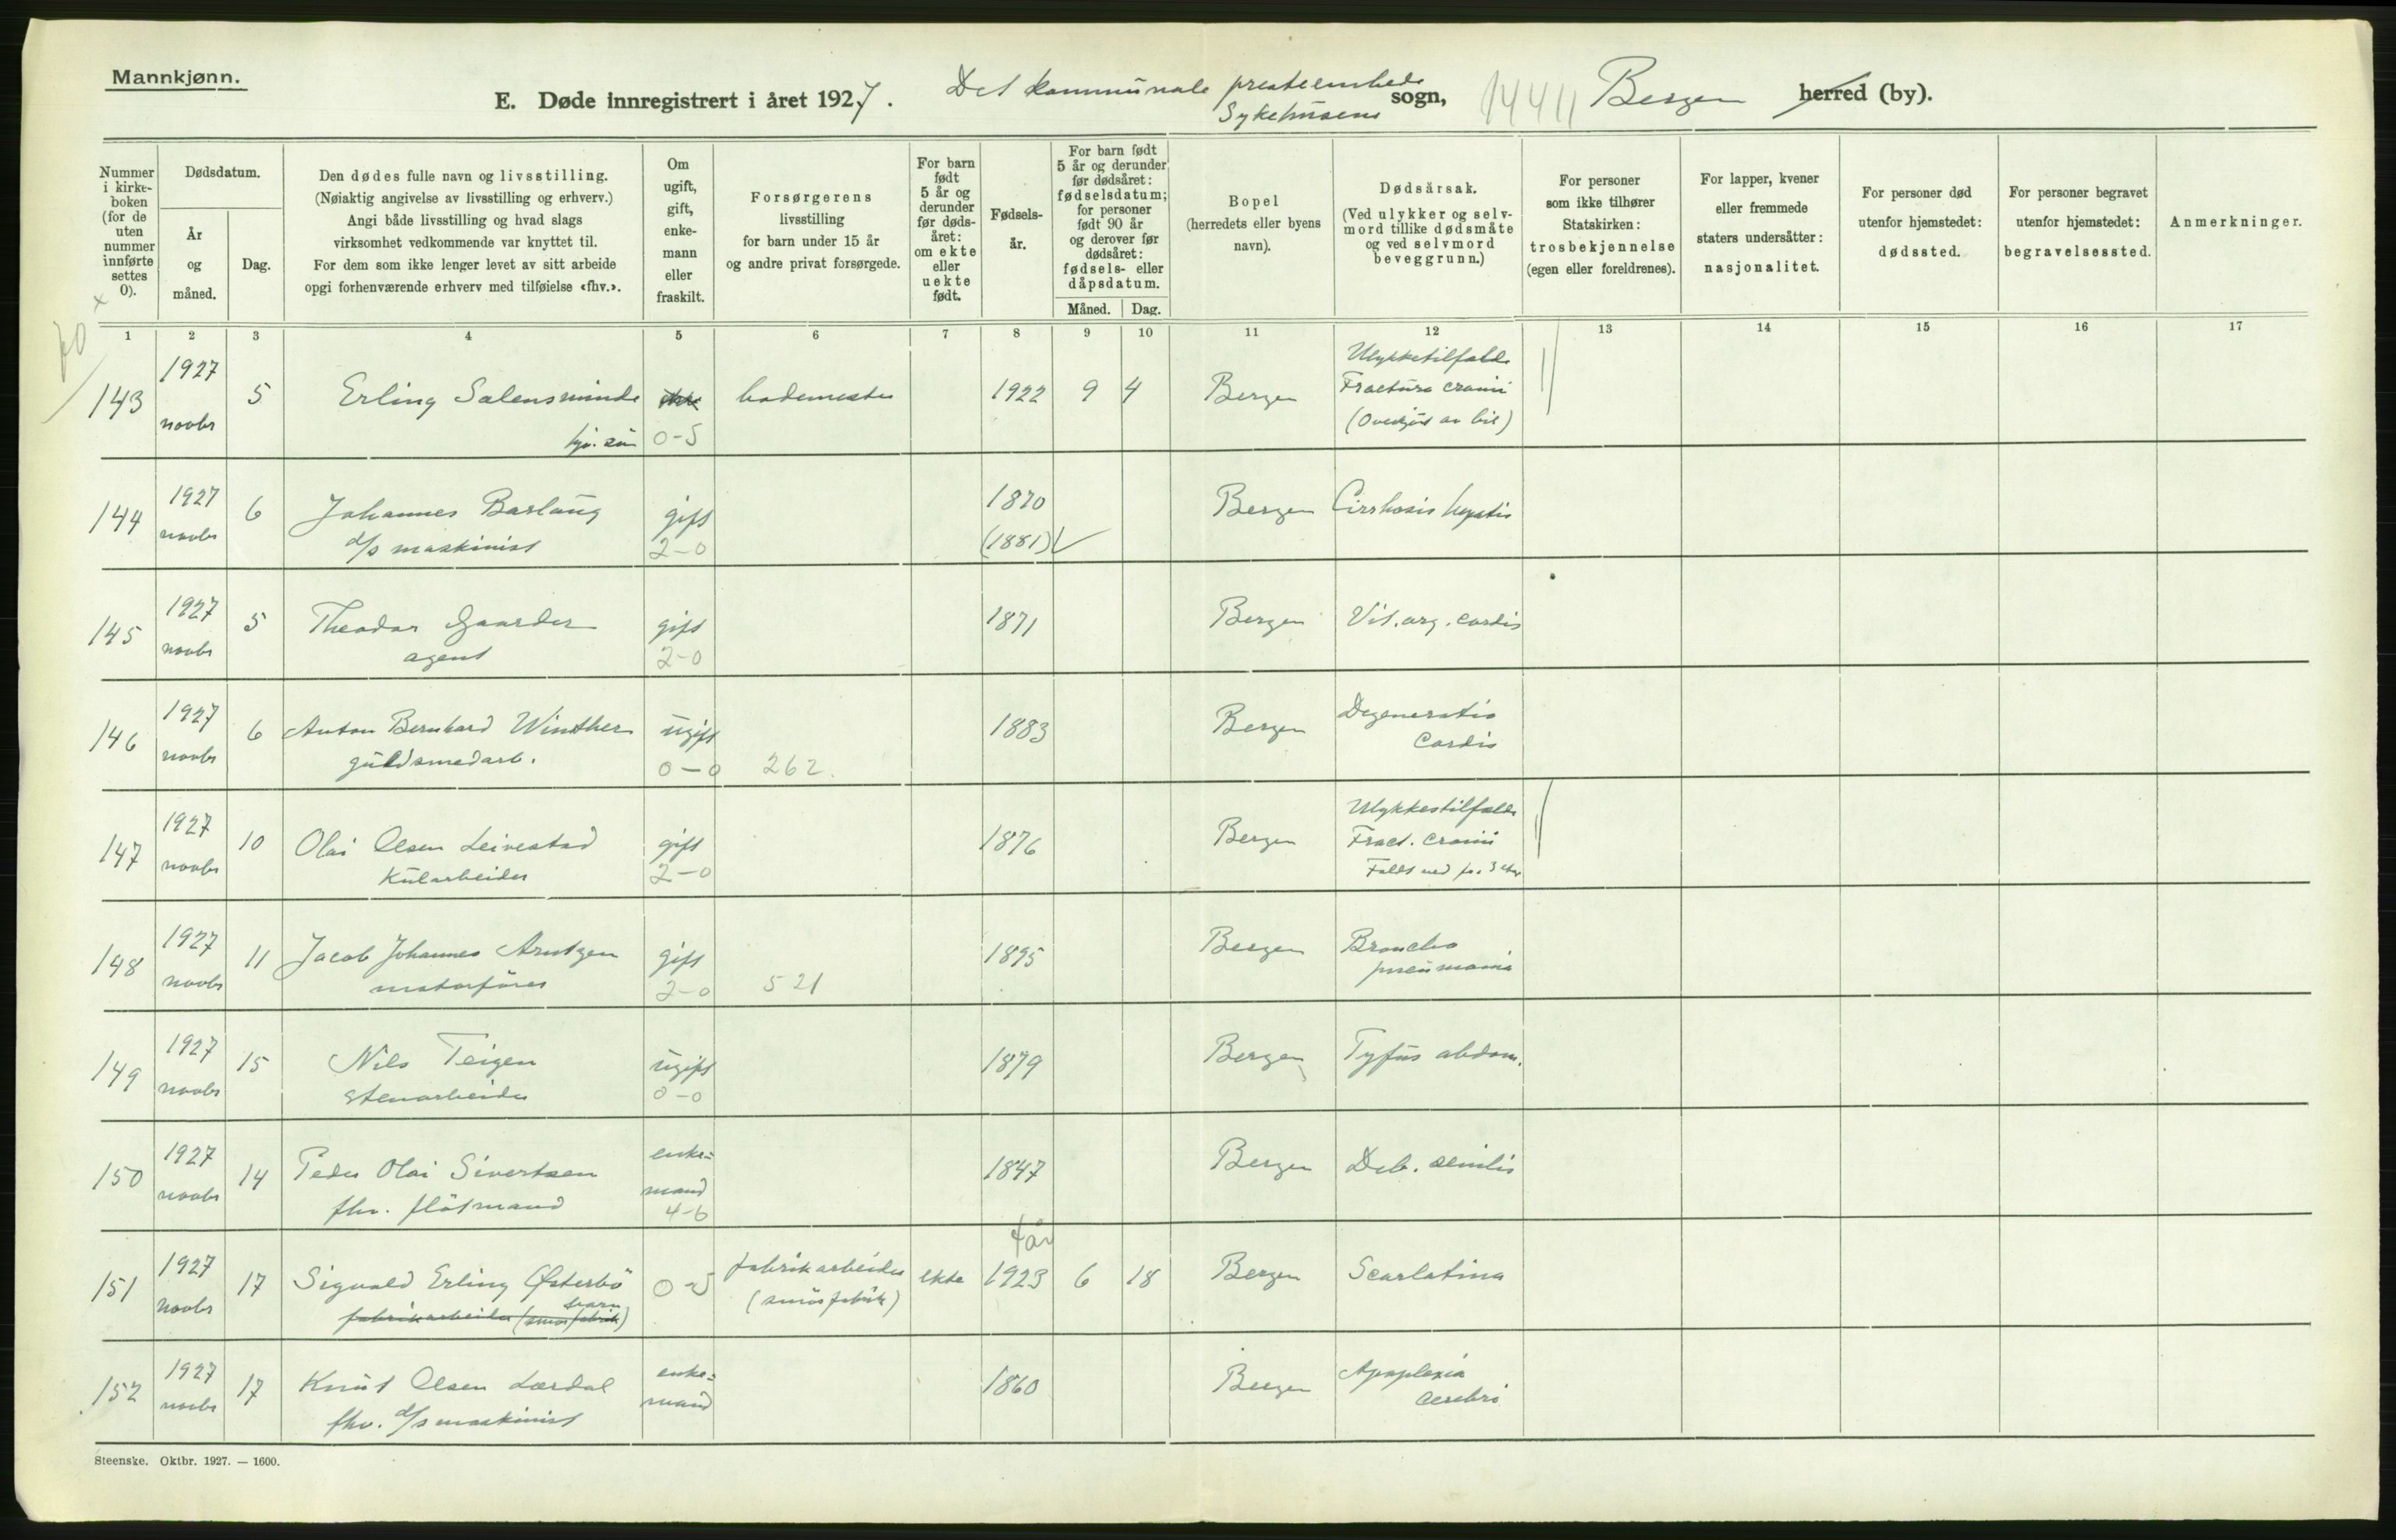 Mannkjønn.
E. Døde innregistrert i året 1927. Det kommunale presteembede sogn, Bergen herred (by).
Sykehusene
Nummer i kirkeboken (for de uten nummer innførte settes 0).
Dødsdatum.
År og måned.
Dag.
Den dødes fulle navn og livsstilling.
(Nøiaktig angivelse av livsstilling og erhverv.)
Angi både livsstilling og hvad slags
virksomhet vedkommende var knyttet til.
For dem som ikke lenger levet av sitt arbeide
opgi forhenværende erhverv med tilføielse «fhv.».
Om ugift, gift, enkemann eller fraskilt.
Forsørgerens
livsstilling
for barn under 15 år
og andre privat forsørgede.
For barn født 5 år og derunder før dødsåret: om ekte eller uekte født.
Fødselsår.
For barn født 5 år og derunder før dødsåret: fødselsdatum; for personer født 90 år og derover før dødsåret: fødsels- eller dåpsdatum.
Måned. Dag.
Bopel
(herredets eller byens navn).
Dødsårsak.
(Ved ulykker og selvmord tillike dødsmåte og ved selvmord beveggrunn.)
For personer som ikke tilhører Statskirken: trosbekjennelse (egen eller foreldrenes).
For lapper, kvener eller fremmede staters undersåtter: nasjonalitet.
For personer død utenfor hjemstedet: dødssted.
For personer begravet utenfor hjemstedet: begravelsessted.
Anmerkninger.
1 2 3 4 5 6 7 8 9 10 11 12 13 14 15 16 17
143 1927 novbr 5 Erling Salensminde 0-5 bademester 1922 9 4 Bergen Ulykkestilfælde
Fractura cranii
(Overkjørt av bil)
144 1927 novbr 6 Johannes Barlaug gift 1870 Bergen Cirrhosis hepatis
d/s maskinist 2-0 (1881)
145 1927 novbr 5 Theodor Gaarder gift 1871 Bergen Vit. org. cordis
agent 2-0
146 1927 novbr 6 Anton Bernhard Winther ugift 1883 Bergen Degeneratio
guldsmedarb. 0-0 262. Cordis
147 1927 novbr 10 Olai Olsen Leivestad gift 1876 Bergen Ulykkestilfælde
Kularbeider 2-0 Fract. cranii
Faldt ned fra 3 etg
148 1927 novbr 11 Jacob Johannes Arntzen gift 1895 Bergen Broncho
motorfører 2-0 521 pneumonia
149 1927 novbr 15 Nils Teigen ugift 1879 Bergen Tyfus abdom.
Stenarbeider 0-0
150 1927 novbr 14 Peder Olai Sivertsen enkemand 1847 Bergen Deb. senilis
fhv. fløtmand 4-6
151 1927 novbr 17 Sigvald Erling Østerbö 0-5 fabrikarbeider ekte 4 år 1923 6 18 Bergen Scarlatina
fabrikarbeider (smørfabrik) barn (smörfabrik)
152 1927 novbr 17 Knut Olsen Lærdal enkemand 1860 Bergen Apoplexia
fhv. d/s maskinist cerebri
Steenske. Oktbr. 1927. — 1600.